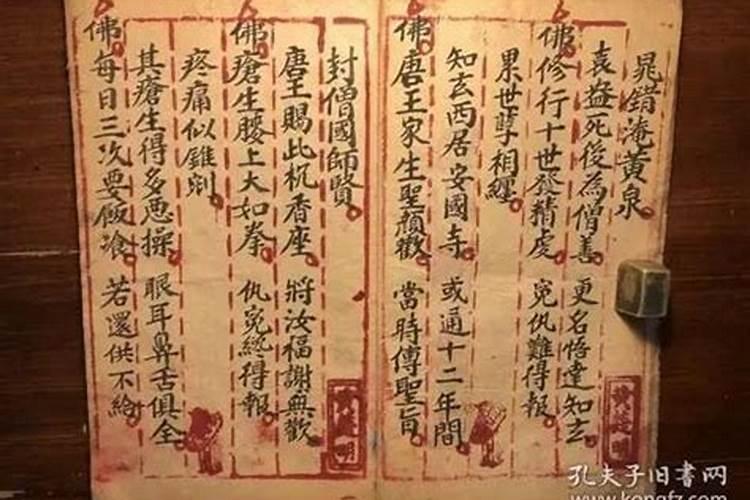 晁錯淹黄泉
袁盎死後為僧善 更名悟達知玄
佛修行十世發精虔 冤仇難得報
累世孽相纏
知玄西居安國寺 或通十二年間
佛唐王家生聖顏歡 當時傳聖旨
封僧國師賢
唐王賜此杌香座 將汝福謝無歡
佛瘡生腰上大如拳 仇冤終得報
疼痛似錐剜
其瘡生得多悪操 眼耳鼻舌俱全
佛每日三次要飯飡 若還供不給
孔夫子旧书网